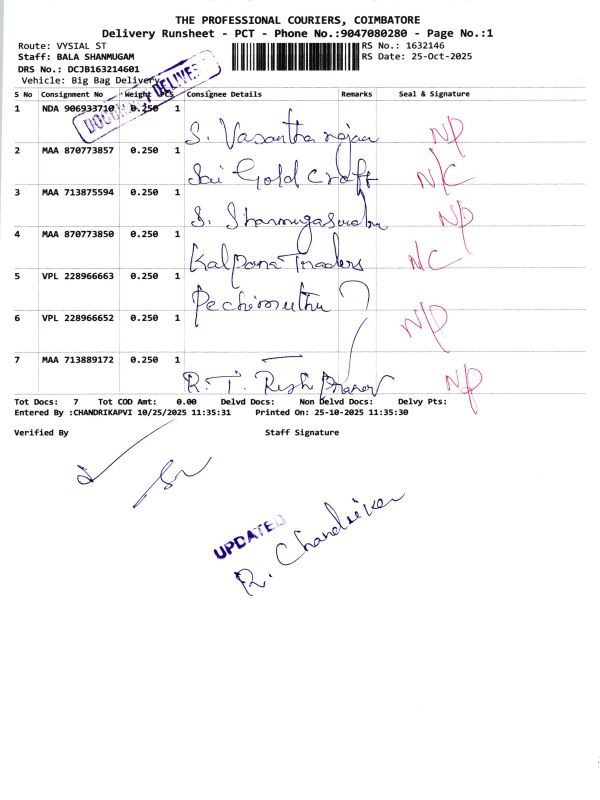 THE PROFESSIONAL COURIERS, COIMBATORE
Delivery Runsheet - PCT - Phone No.:9047080280 - Page No.:1
Route: VYSIAL ST RS No.: 1632146
Staff: BALA SHANMUGAM RS Date: 25-Oct-2025
DRS No.: DCJB163214601
Vehicle: Big Bag Delivery
S No Consignment No Weight PCS Consignee Details Remarks Seal & Signature
1 NDA 906933710 0.250 1 S. Vasantha NP
2 MAA 870773857 0.250 1 Sai Gold Craft N/C
3 MAA 713875594 0.250 1 S. NP
4 MAA 870773850 0.250 1 Kalpana Traders NC
5 VPL 228966663 0.250 1 Pechimuthu
6 VPL 228966652 0.250 1 N/P
7 MAA 713889172 0.250 1 R. T. NP
Tot Docs: 7 Tot COD Amt: 0.00 Delvd Docs: Non Delvd Docs: Delvy Pts:
Entered By :CHANDRIKAPVI 10/25/2025 11:35:31 Printed On: 25-10-2025 11:35:30
Verified By Staff Signature
UPDATED
R. Chandrika